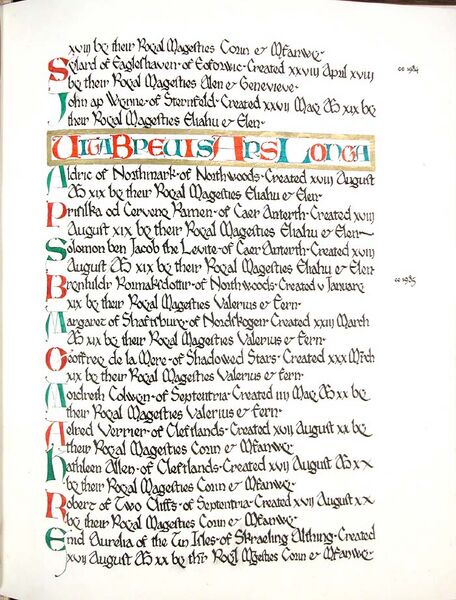 xviij by their Royal Magesties Corin & Myfanwy·
Sylard of Eagleshaven·of Eoforwic·Created xxviij April xviij
cc 1984
by their Royal Magesties Alen & Genevieve·
John ap Wynne·of Sternfeld·Created xxvij May AS xix by
their Royal Magesties Eliahu & Elen·
VITA BREVIS ARS LONGA
Aldric of Northmark·of Northwoods·Created xviij August
AS xix by their Royal Magesties Eliahu & Elen·
Prisilka od Cerveny Kamen·of Caer Anterth·Created xviij
August xix by their Royal Magesties Eliahu & Elen
Solomon ben Jacob the Levite·of Caer Anterth·Created xviij
August AS xix by their Royal Magesties Eliahu & Elen
Brynhildr Kormaksdottir·of Northwoods·Created v January
cc 1985
xix by their Royal Magesties Valerius & Fern·
Margaret of Shaftsbury·of Nordskogen·Created xxiij March
AS xix by their Royal Magesties Valerius & Fern·
Geoffrey de la Mere·of Shadowed Stars·Created xxx March
xix by their Royal Magesties Valerius & Fern
Aordreth Colwyn·of Septentria·Created iiij May AS xx by
their Royal Magesties Valerius & Fern·
Aelred Verrier·of Cleftlands·Created xvij August xx by
their Royal Magesties Corin & Myfanwy·
Kathleen Allen·of Cleftlands·Created xvij August AS xx
by their Royal Magesties Corin & Myfanwy·
Robert of Two Cliffs·of Septentria·Created xvij August xx
by their Royal Magesties Corin & Myfanwy·
Enid Aurelia of the Tin Isles·of Skraeling Althing·Created
xvij August AS xx by their Royal Magesties Corin & Myfanwy·